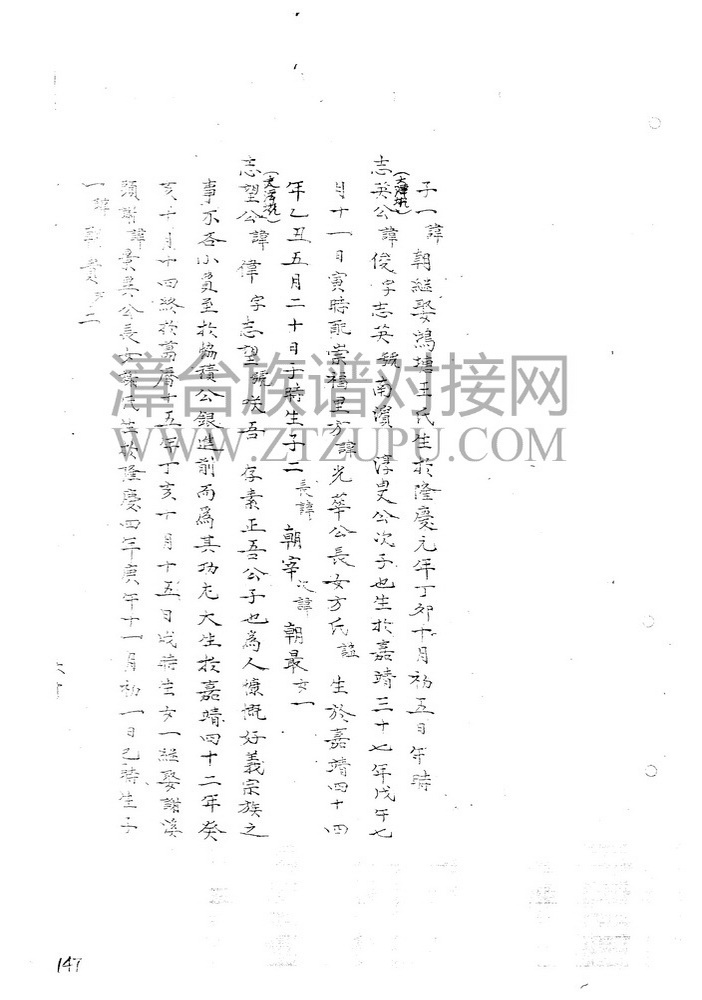 子一諱朝継娶鴻塘王氏生於隆慶元年丁卯十月初五日午時
志英公諱俊字志英號南濱淳叟公次子也生於嘉靖三十七年戊午七
月十一日寅時配崇福里方諱光華公長女方氏諡 生於嘉靖四十四
年乙丑五月二十日子時生子二長諱朝宰次諱朝最女一
志望公諱偉字志望號 吾存素正吾公子也為人慷慨好義宗族之
事不吝小費至於 積公銀造 而為其功尤大生於嘉靖四十二年癸
亥十月十四終於萬曆十五年丁亥十月十五日戌時生女一継娶謝溪
頭謝諱景 公長女謝氏生於隆慶四年庚午十一月初一日巳時生子
一諱朝 女二
漳台族谱对接网
WWW.ZTZUPU.COM
147